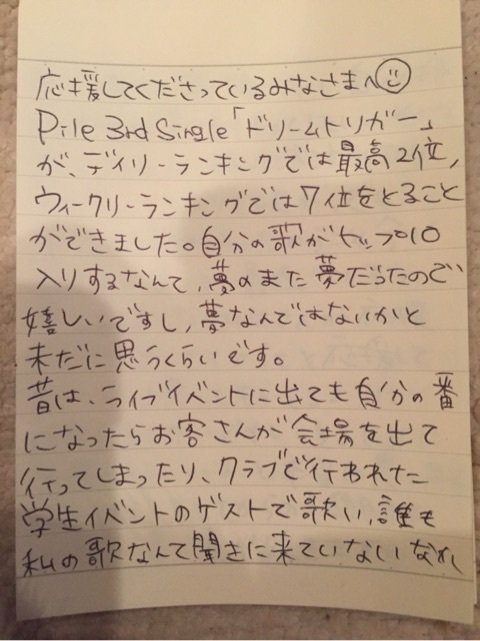 応援してくださっているみなさまへ
Pile 3rd Single「ドリームトリガー」
が、デイリーランキングでは最高2位、
ウィークリーランキングでは7位をとること
ができました。自分の歌がトップ10
入りするなんて、夢のまた夢だったので
嬉しいですし、夢なんではないかと
未だに思うくらいです。
昔は、ライブイベントに出ても自分の番
になったらお客さんが会場を出て
行ってしまったり、クラブで行われた
学生イベントのゲストで歌い、誰も
私の歌なんて聞きに来ていないなか